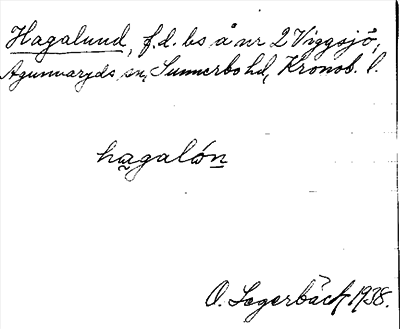 Hagalund, f.d. bs å nr 2 Viggsjö,
Agunnaryds sn, Sunnerbo hd, Kronob. l.
hagaló̱n
O. Legerbäck 1938.